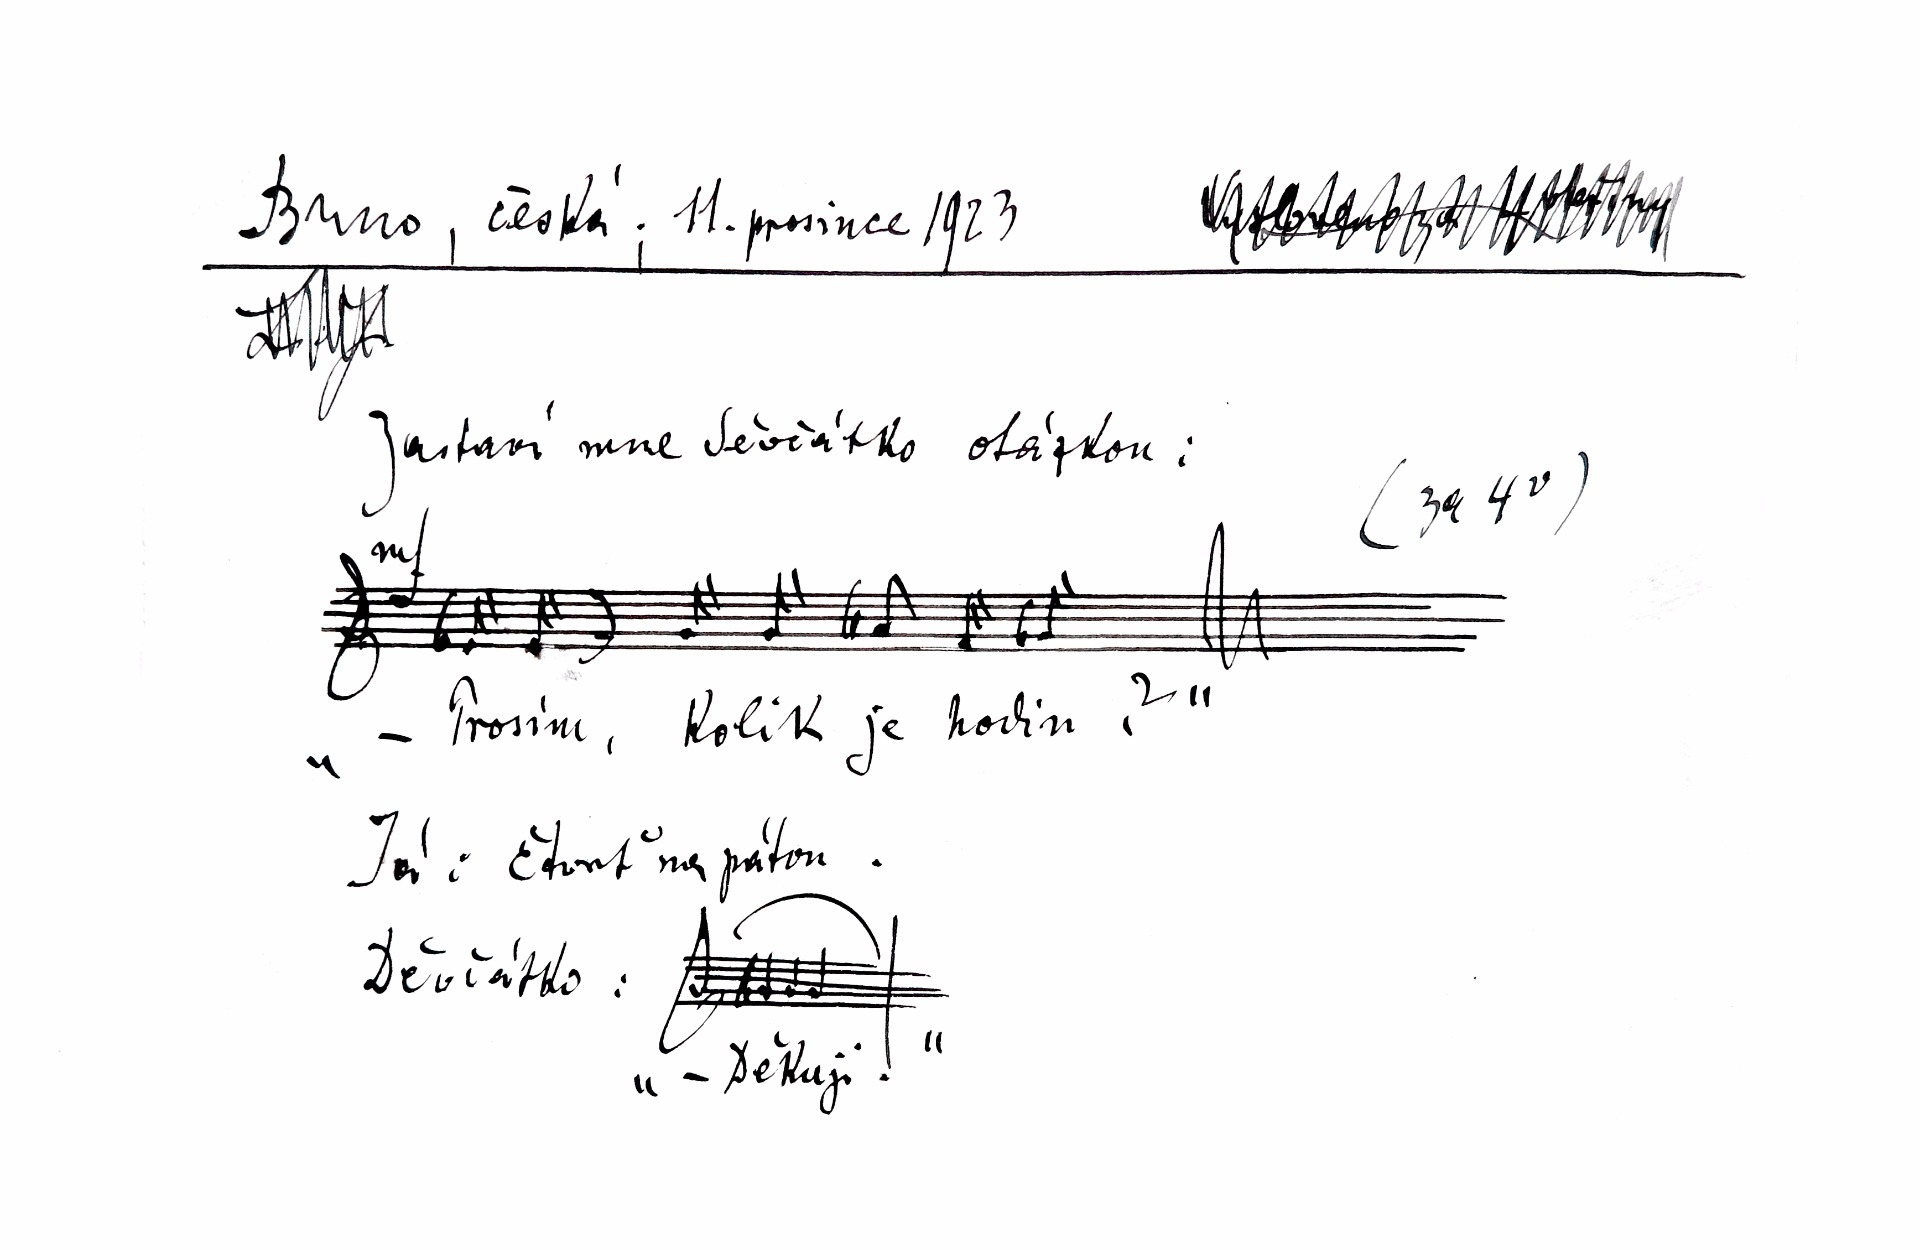 Brno, česká; 11. prosince 1923
Zastaví mne děvčátko otázkou:
(za 4 v)
mf
„– Prosím, kolik je hodin?“
Já: čtvrť na pátou.
Děvčátko:
„– Děkuji.“